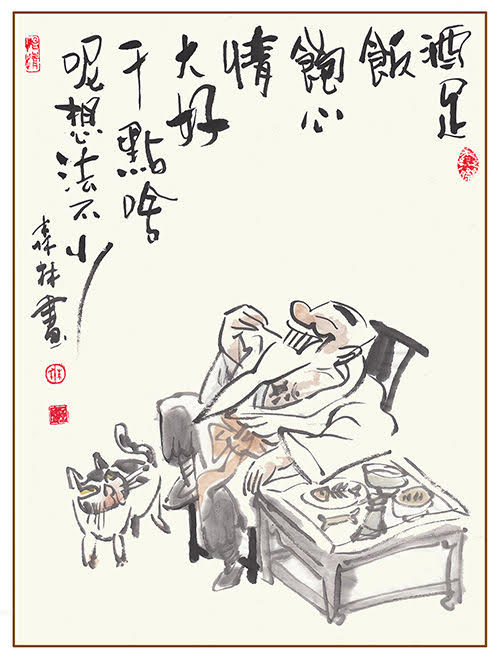 酒足
飯
飽心
情
大好
干點啥
呢想法不少
森林書